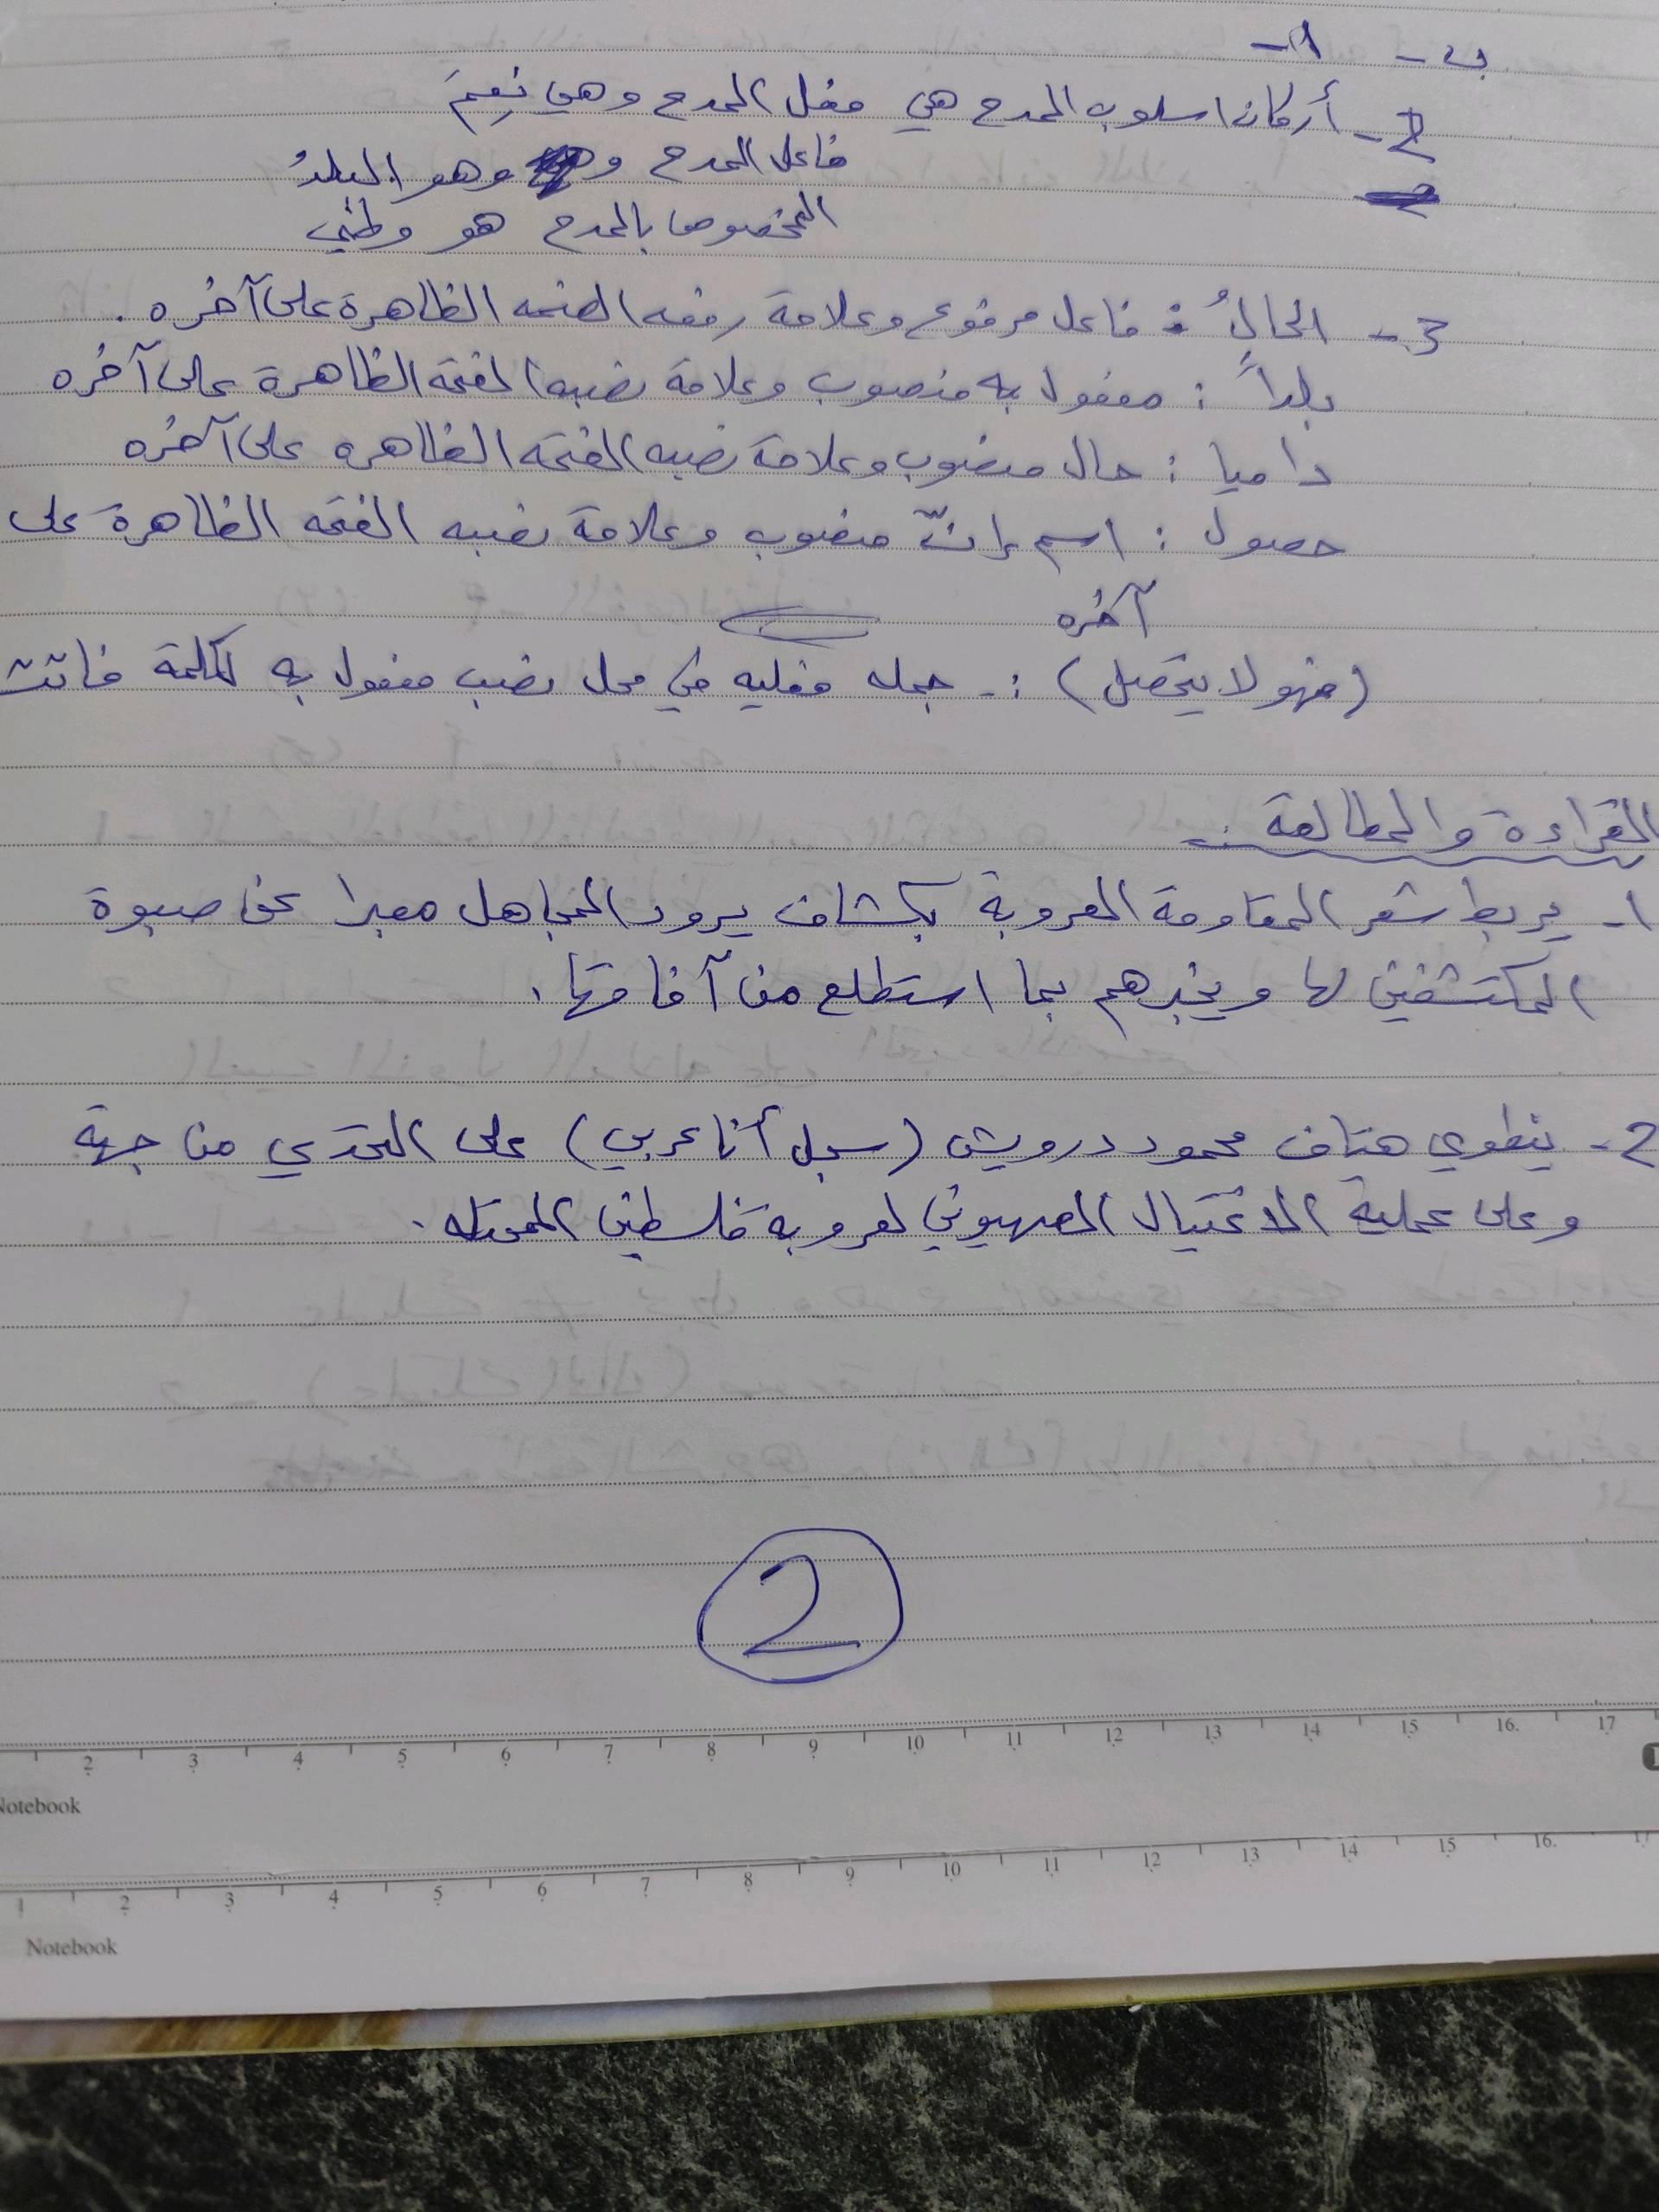 ب - 1 -
2 - أركان اسلوب المدح هي فعل المدح وهي نِعِمَ
فاعل المدح و وهو البلدُ
المخصوص بالمدح هو وطني
3 - الحالُ : فاعل مرفوع وعلامة رفعه الضمه الظاهرة على آخره .
بلداً : مفعول به منصوب وعلامة نصبه الفتحه الظاهرة على آخره
داميا : حال منصوب وعلامة نصبه الفتحه الظاهره على آخره
حصول : اسم إنّ منصوب وعلامة نصبه الفتحه الظاهرة على
آخره
(فهو لا يتحصل) :- جمله فعليه في محل نصب مفعول به لكلمة فاتت
القراءة والمطالعة :-
1- يربط شعر المقاومة العروبة بكشاف يرود المجاهل معبرا عن صبوة
المكتشفين لها ويخبرهم بما استطلع من آفاقها .
2- ينطوي هتاف محمود درويش (سجل أنا عربي) على التحدي من جهة
وعلى عملية الاغتيال الصهيوني لعروبة فلسطين المحتله .
2
2 3 4 5 6 7 8 9 10 11 12 13 14 15 16. 17
Notebook
1 2 3 4 5 6 7 8 9 10 11 12 13 14 15 16. 17
Notebook